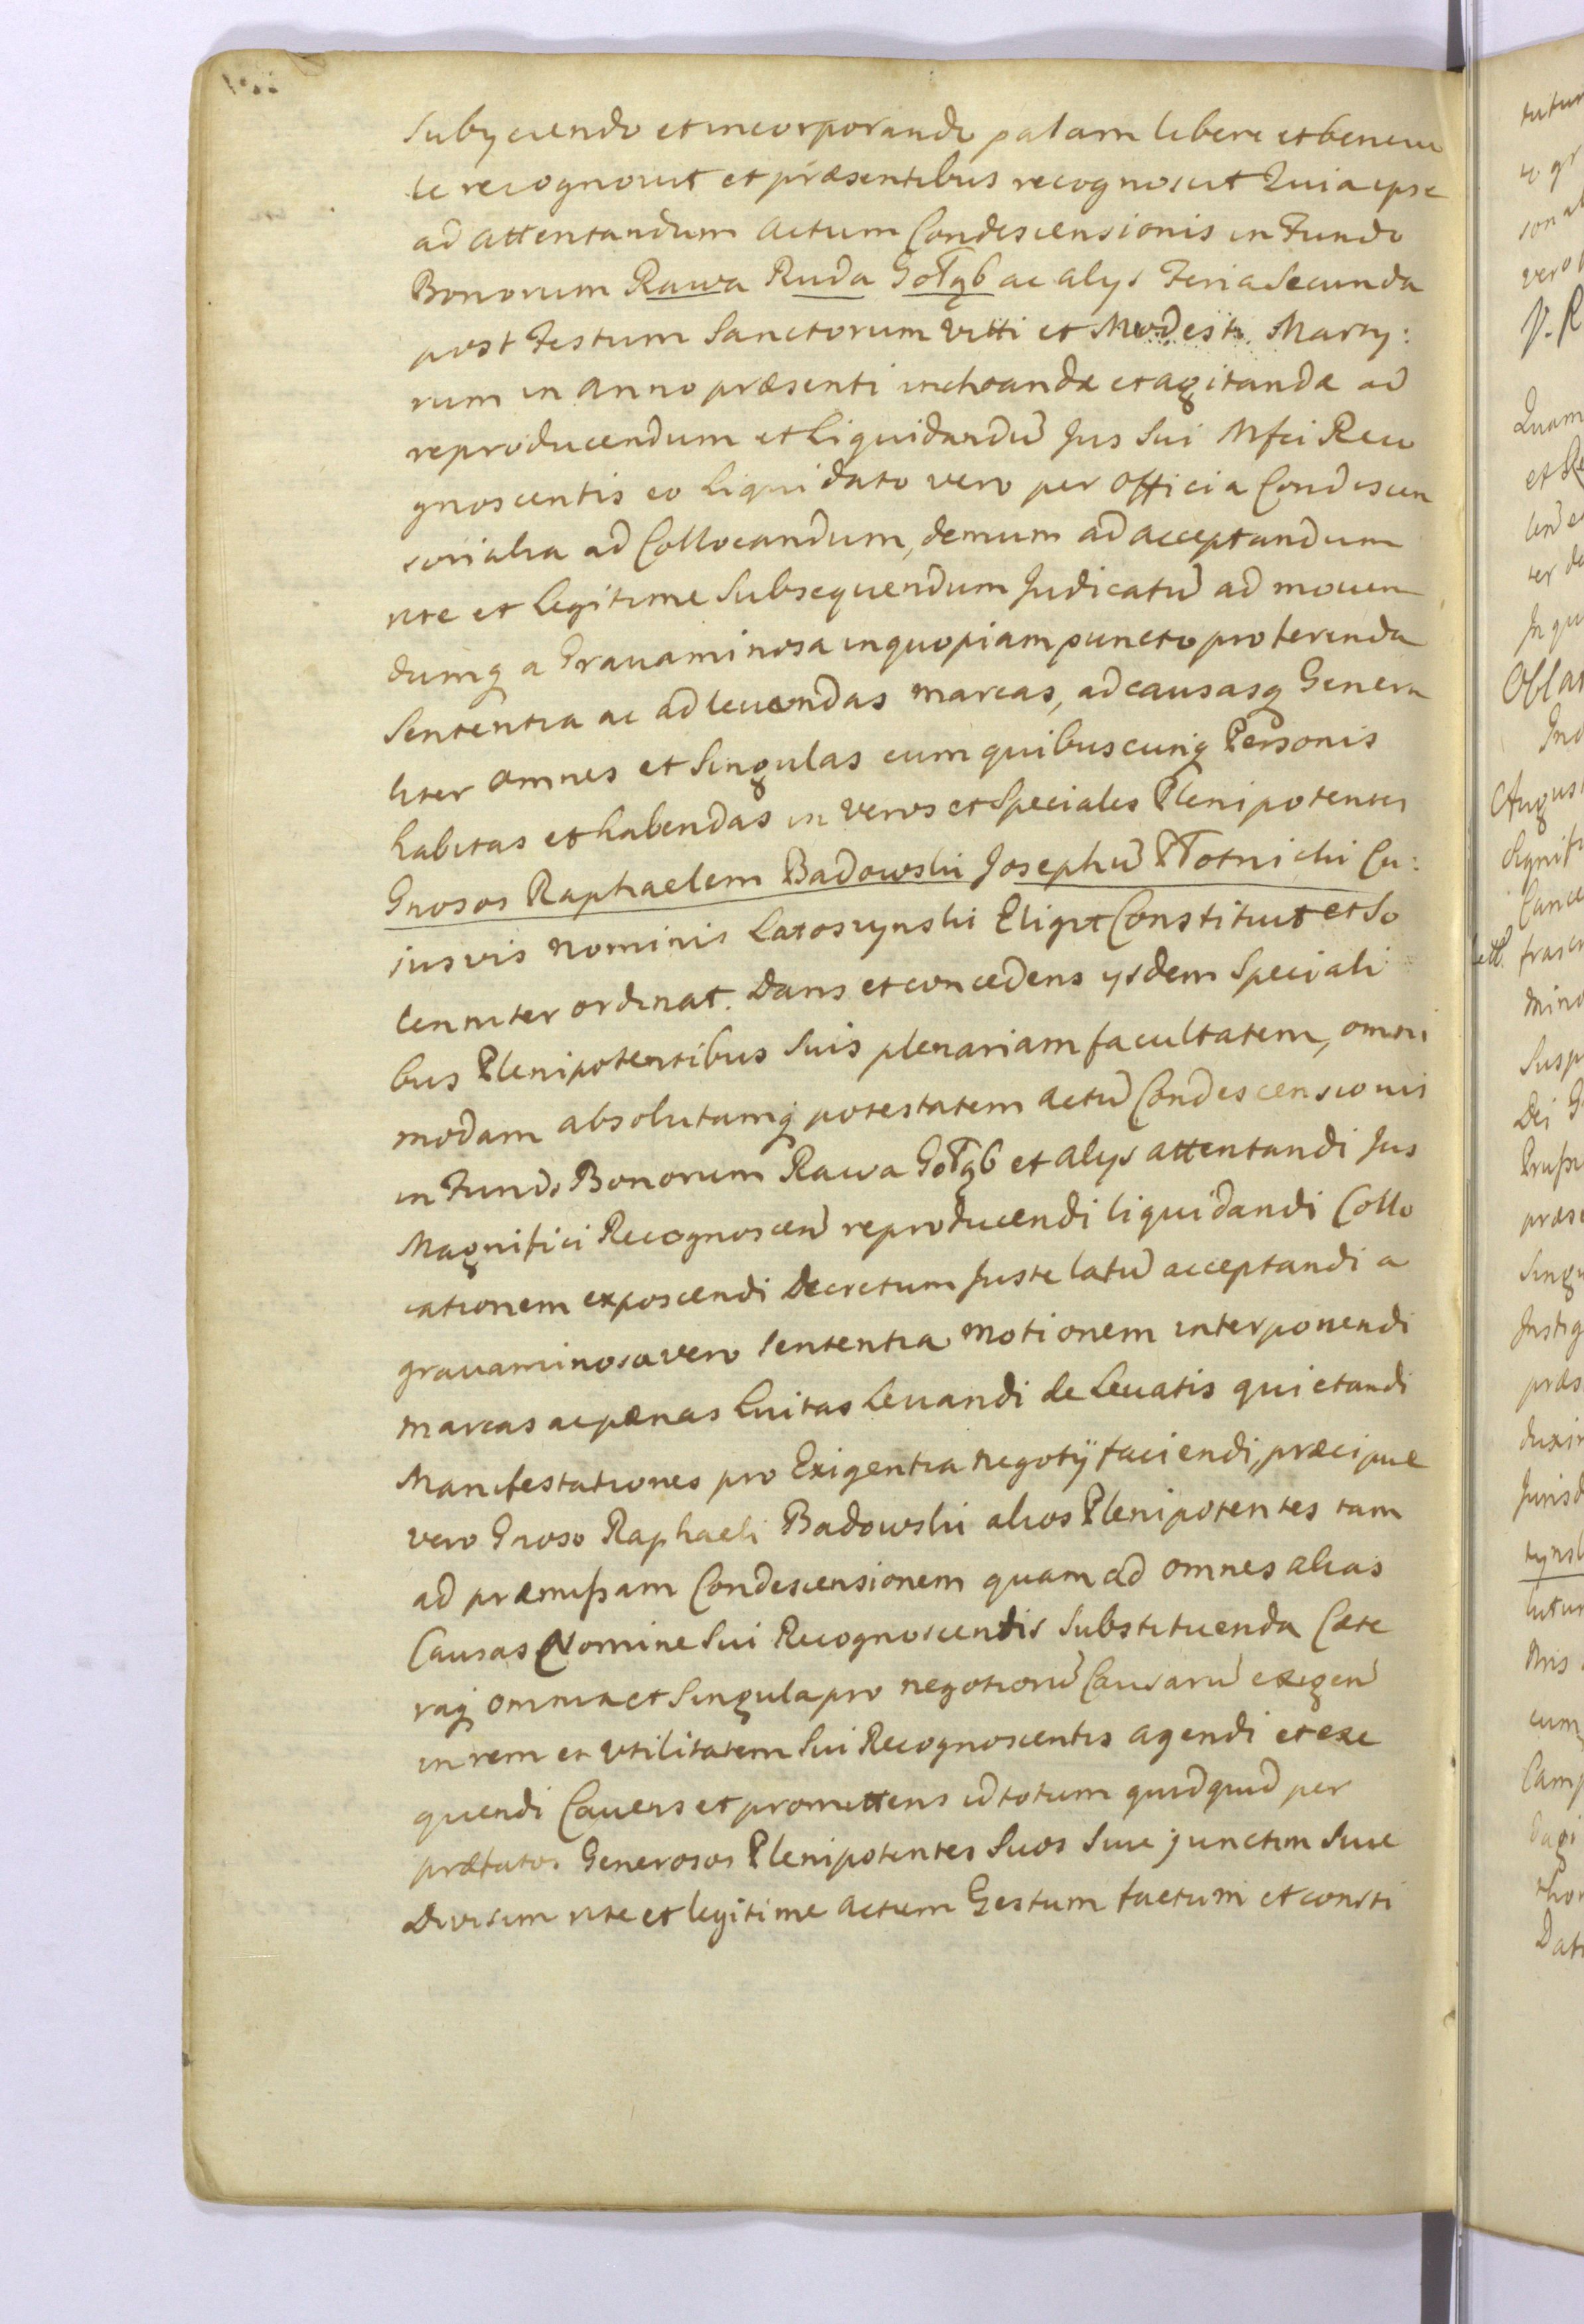 Subyciendo et incorporando palam libere et benevo
le recognovit et præsentibus recognoscit Quia ipse
ad attentandum actum Condescensionis in Fundo
Bonorum Rawa Ruda Gołąb ac alys Feria Secunda
post Festum Sanctorum Vitti et Modesti Marty:
rum in Anno præsenti inchoandæ et agitandæ ad
reproducendum et Liquidandũ Jus Sui Mfci Reco
gnoscentis eo Liquidato vero per Officia Condescen
sorialia ad Collocandum, demum ad acceptandum
rite et legitime Subsequendum Judicatũ ad moven
dumq a Gravaminosa in quopiam puncto proferenda
Sententia ac ad levandas marcas, ad causasq Genera
liter omnes et Singulas cum quibuscunq Personis
habitas et habendas in veros et Speciales Plenipotentes
Gnosos Raphaelem Badowski Josephũ Płotnicki Cu:
iusvis nominis Latoszynski Eligit Constituit et So
lenniter ordinat. Dans et concedens ysdem Speciali
bus Plenipotentibus Suis plenariam facultatem, omni
modam absolutamq potestatem actũ Condescensionis
in Fundo Bonorum Rawa Gołąb et alys attentandi Jus
Magnifici Recognoscen reproducendi liquidandi Collo
cationem exposcendi Decretum Juste latũ acceptandi a
gravaminosa vero Sententia Motionem interponendi
marcas ac pænas Luitas Levandi de Levatis quietandi
Manifestationes pro Exigentia negotÿ faciendi, præcipue
vero Groso Raphaeli Badowski alios Plenipotentes tam
ad præmissam Condescensionem quam ad omnes alias
Causas Nomine Sui Recognoscentis Substituenda Cæte
raq omnia et Singula pro negotiorũ Causarũ exigen
in rem et Utilitatem Sui Recognoscentis agendi et exe
quendi Cavens et promittens id totum quidquid per
præfatos Generosos Plenipotentes Suos Sive junctim Sive
Divisim rite et legitime actum Gestum factum et consti